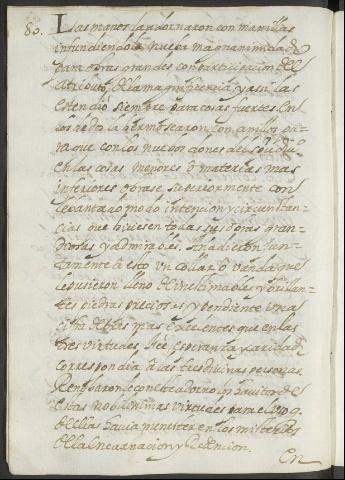 80. Las manos la adornaron con manillas
infundiendola nueva magnanimidad
para obras grandes con participacion del
atributo de la magnificencia y assi las
estendio siempre para cosas fuertes. En
los dedos la hermosearon con anillos pa-
ra que con los nuevos dones del
en las cosas menores o materias mas
inferiores obrase superiormente con
levantado modo intencion y circunstan-
cias que hiciesen todas sus obras gran-
diosas y admirables. Añadieron jun-
tamente a esto un collar o vanda que
le pusieron lleno de inestimables y brillan-
tes piedras preciosas y pendiente una
cifra de tres mas excelentes que en las
tres virtudes fee, esperanza y caridad
correspondia a las tres divinas personas.
Renobaronle con este adorno los havitos de
estas nobilissimas virtudes para el uso q.
de ellas havia menester en los misterios
de la Encarnacion y Redencion.
En